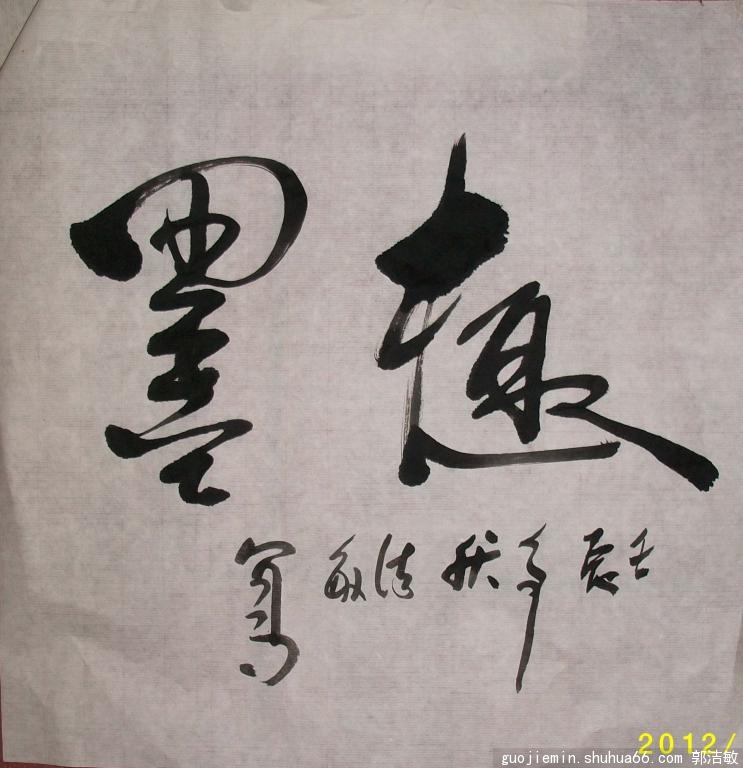 墨趣
壬辰年秋洁敏寫
2012/
guojiemin.shuhua66.com 郭洁敏